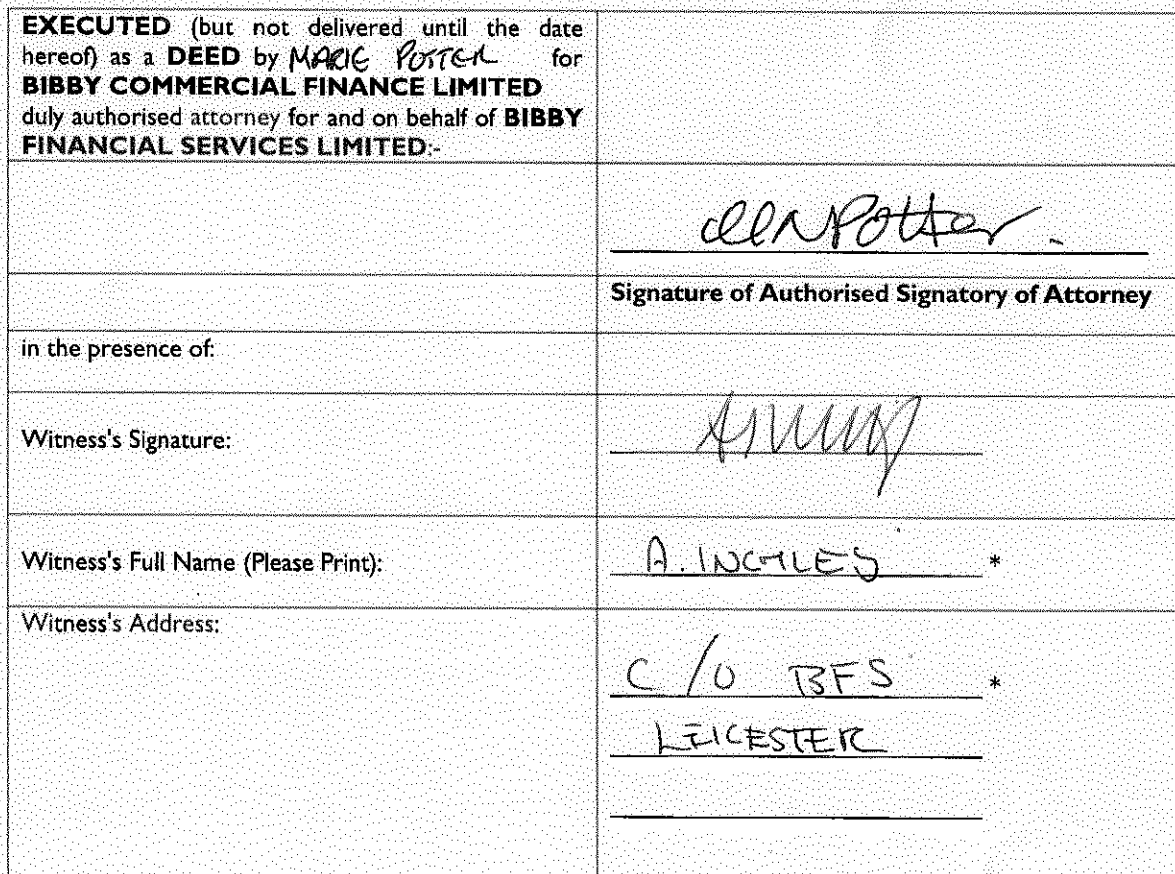 EXECUTED (but not delivered until the date
hereof) as a DEED by MARIE POTTER for
BIBBY COMMERCIAL FINANCE LIMITED
duly authorised attorney for and on behalf of BIBBY
FINANCIAL SERVICES LIMITED:-
Potter.
Signature of Authorised Signatory of Attorney
in the presence of:
Witness's Signature:
Witness's Full Name (Please Print): A. INGLEY *
Witness's Address:
C/O BFS *
LEICESTER